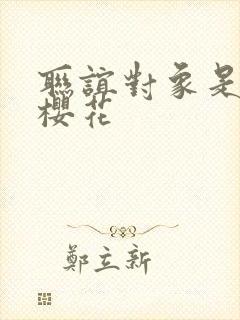 聯誼對象是
櫻花
鄭立新